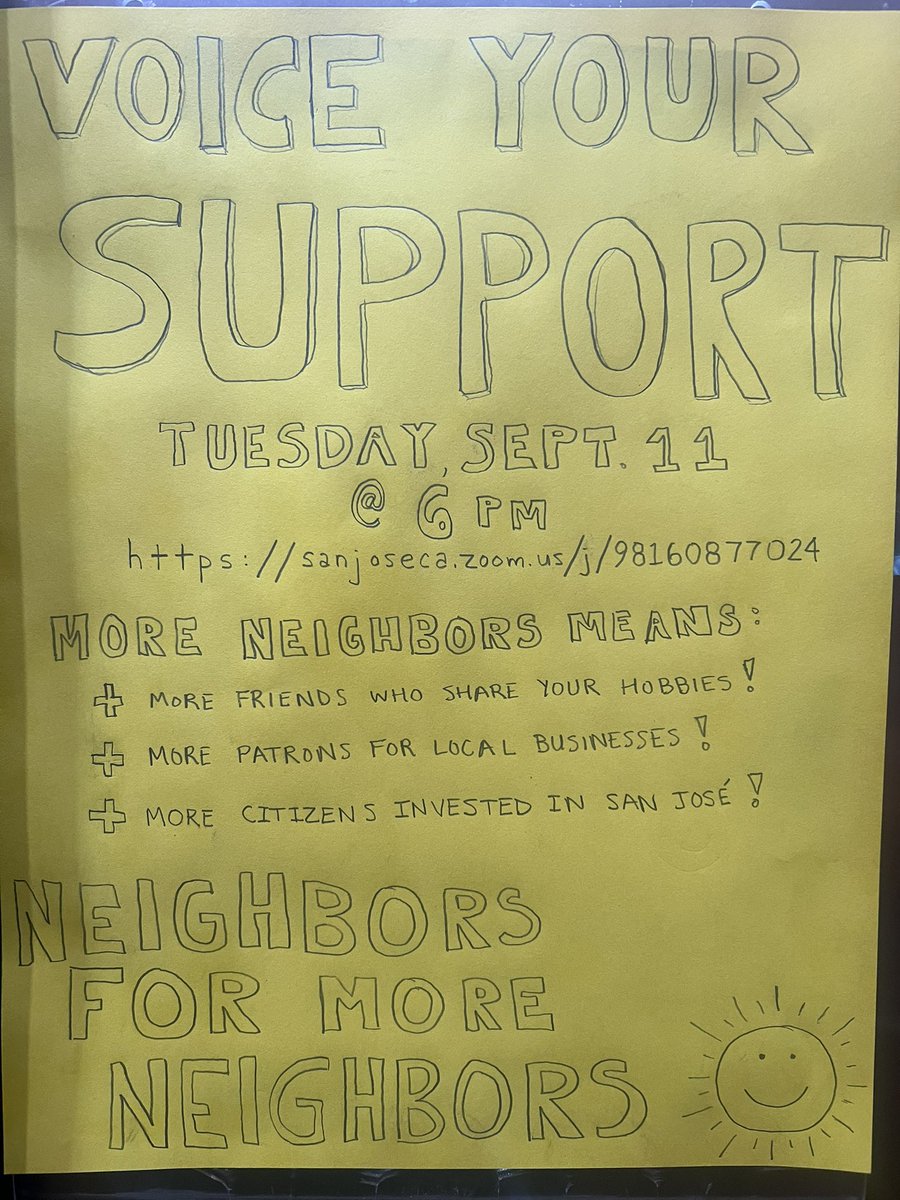 VOICE YOUR
SUPPORT
TUESDAY, SEPT. 11
@ 6 PM
https://sanjoseca.zoom.us/j/98160877024
MORE NEIGHBORS MEANS:
+ MORE FRIENDS WHO SHARE YOUR HOBBIES!
+ MORE PATRONS FOR LOCAL BUSINESSES!
+ MORE CITIZENS INVESTED IN SAN JOSÉ!
NEIGHBORS
FOR MORE
NEIGHBORS